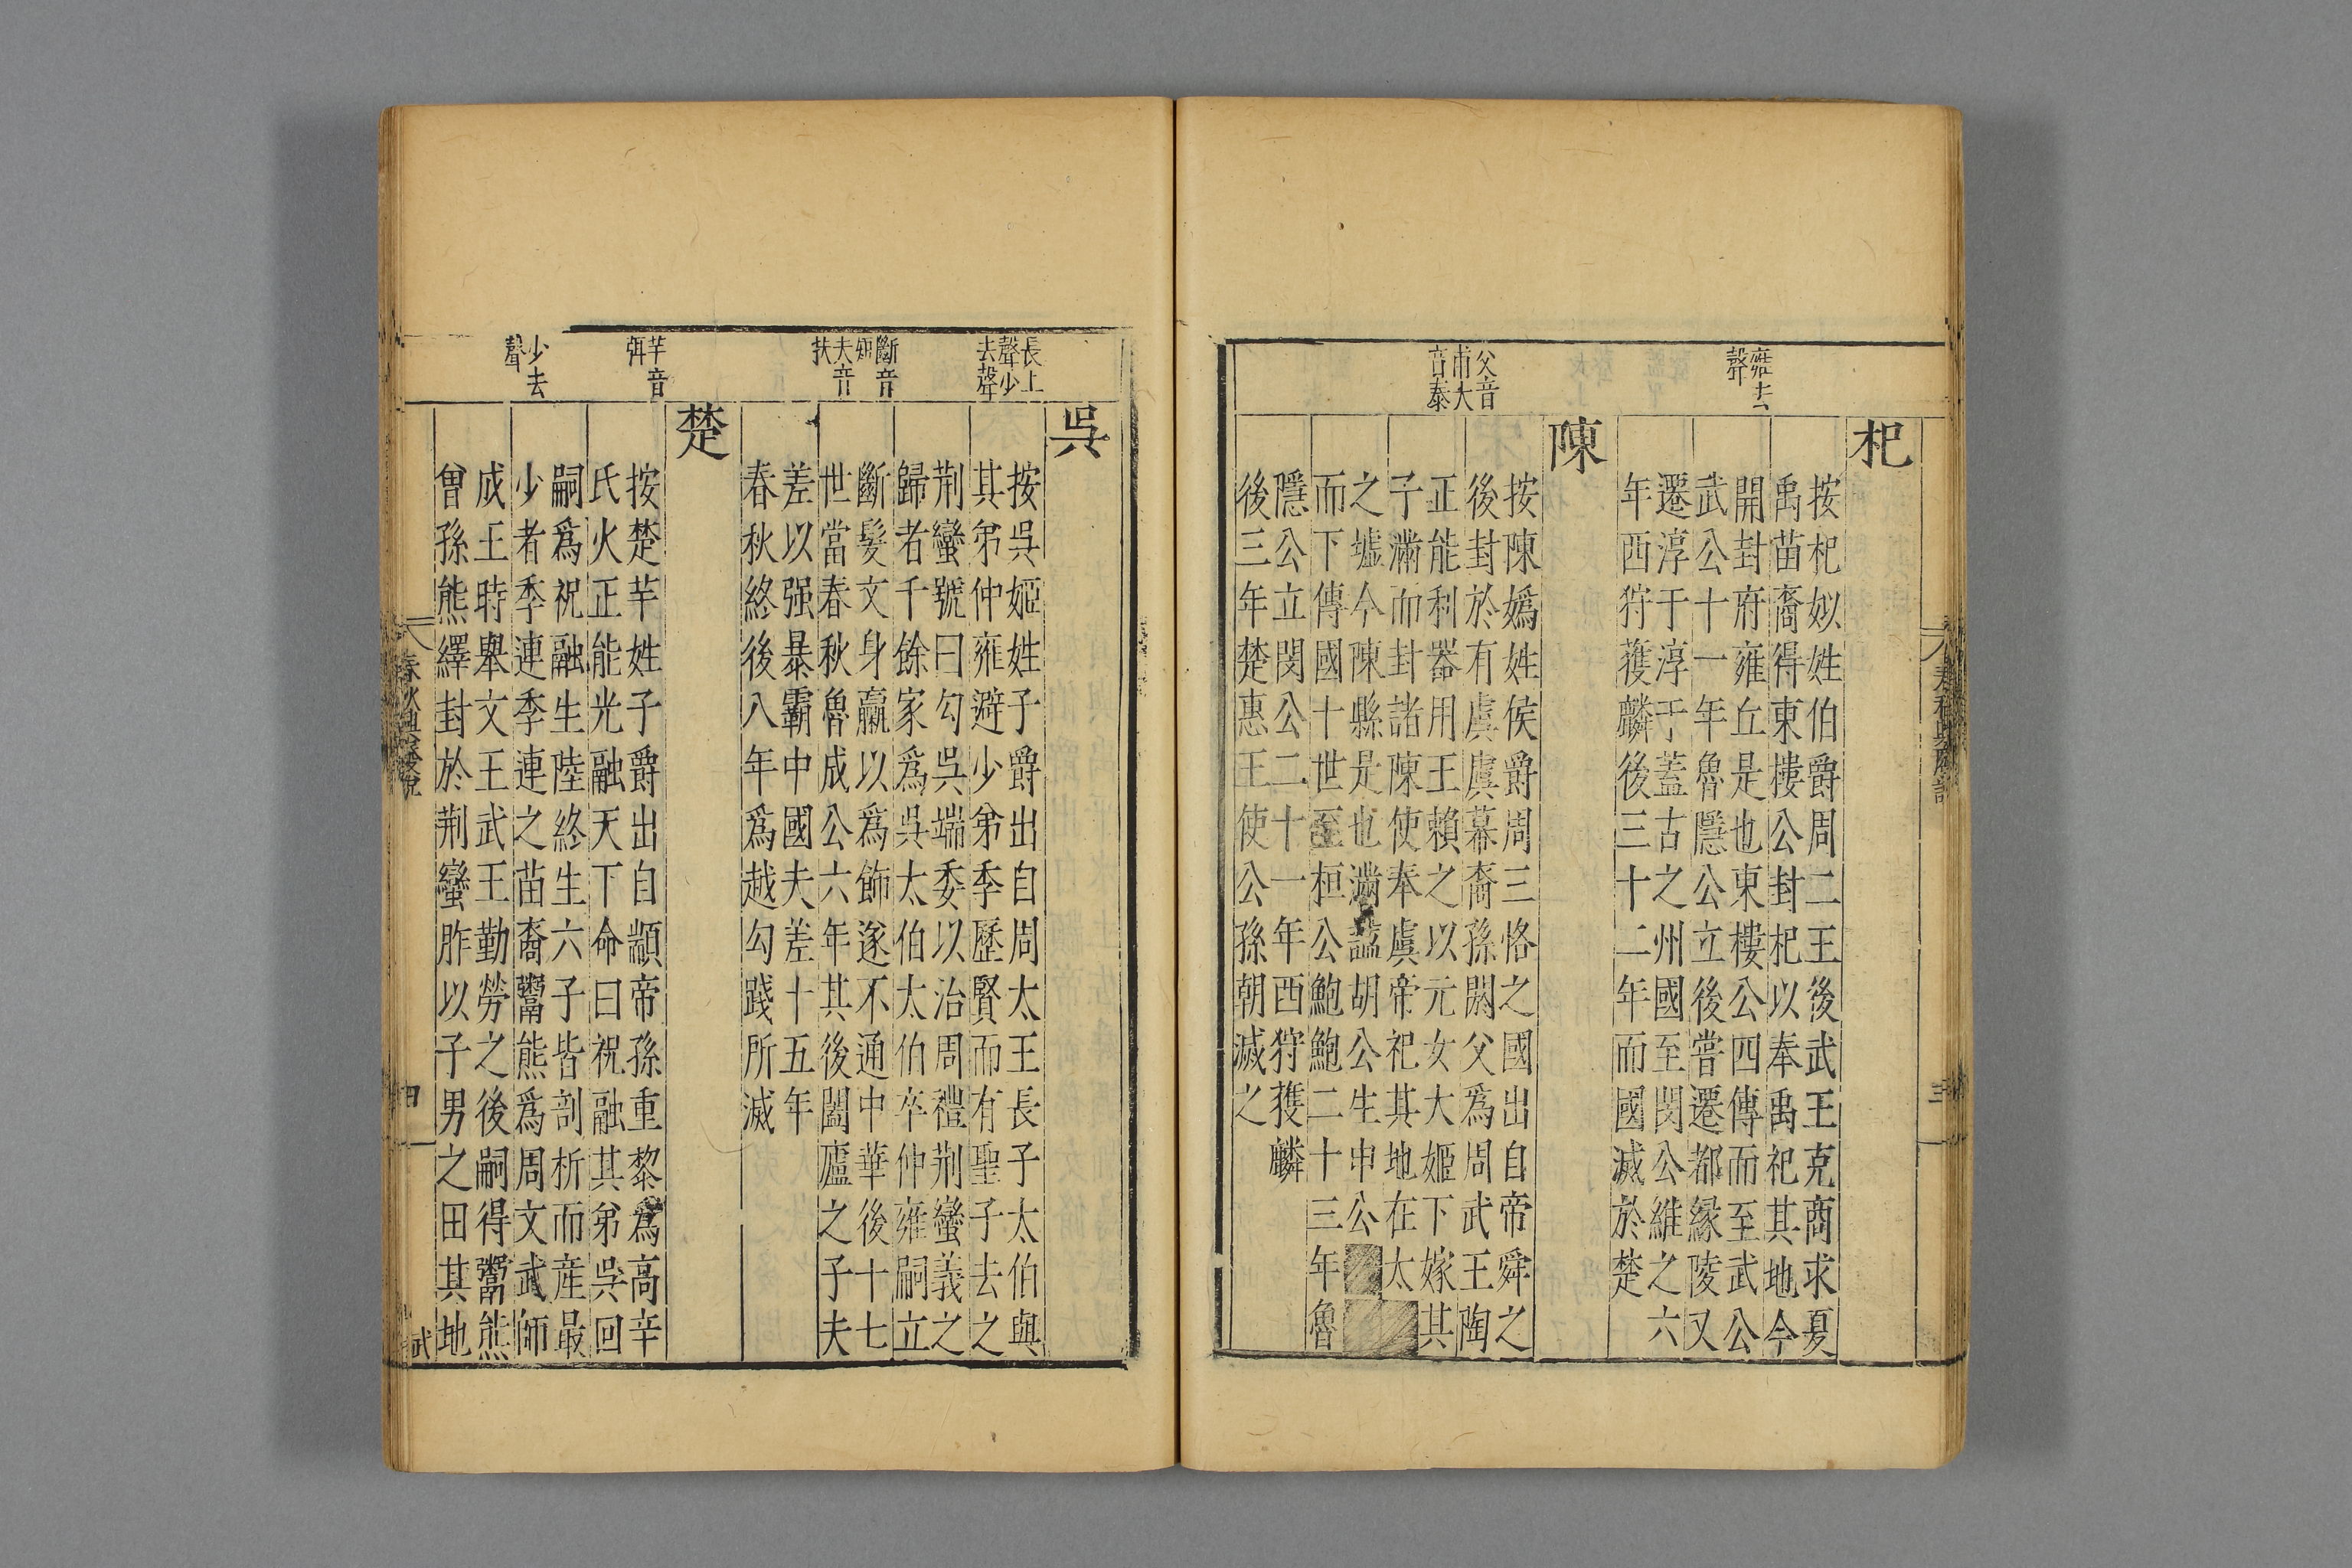 杞
按杞姒姓伯爵周二王後武王克商求夏
禹苗裔得東樓公封杞以奉禹祀其地今
開封府雍丘是也東樓公四傳而至武公
武公十一年魯隱公立後嘗遷都緣陵又
遷淳于淳于蓋古之州國至閔公維之六
年西狩獲麟後三十二年而國滅於楚
去
聲
陳
按陳嬀姓侯爵周三恪之國出自帝舜之
後封於有虞虞幕裔孫閼父爲周武王陶
正能利器用王賴之以元女大姬下嫁其
子滿而封諸陳使奉虞帝祀其地在太
之墟今陳縣是也滿諡胡公生申公
而下傳國十世至桓公鮑鮑二十三年魯
隱公立閔公二十一年西狩獲麟
後三年楚惠王使公孫朝滅之
父音
甫大
音泰
三
吳
按吳姬姓子爵出自周太王長子太伯與
其弟仲雍避少弟季歷賢而有聖子去之
荆蠻號曰勾吳端委以治周禮荆蠻義之
歸者千餘家爲吳太伯太伯卒仲雍嗣立
斷髮文身臝以爲飾遂不通中華後十七
世當春秋魯成公六年其後闔廬之子夫
差以强暴霸中國夫差十五年
春秋終後八年爲越勾踐所滅
長上
聲少
去聲
斷音
短
夫音
扶
楚
按楚芊姓子爵出自顓帝孫重黎爲高辛
氏火正能光融天下命曰祝融其弟吳回
嗣爲祝融生陸終生六子皆剖析而產最
少者季連季連之苗裔鬻熊爲周文武師
成王時舉文王武王勤勞之後嗣得鬻熊
曾孫熊繹封於荆蠻胙以子男之田其地
芊音
弭
少去
聲
四
武